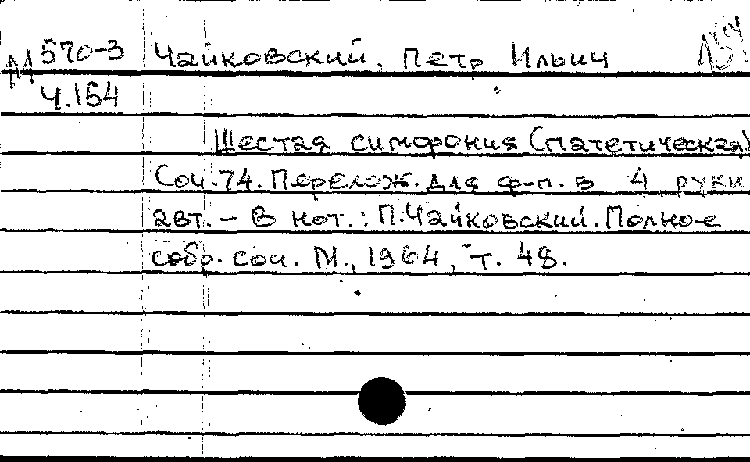 М 570-3 Чайковский, Петр Ильич
Ч.154
Шестая симфония (патетическая)
Соч.74. Перелож. для ф-п. в 4 руки
авт. – В нот.: П.Чайковский. Полное
собр. соч. М., 1964, т. 48.